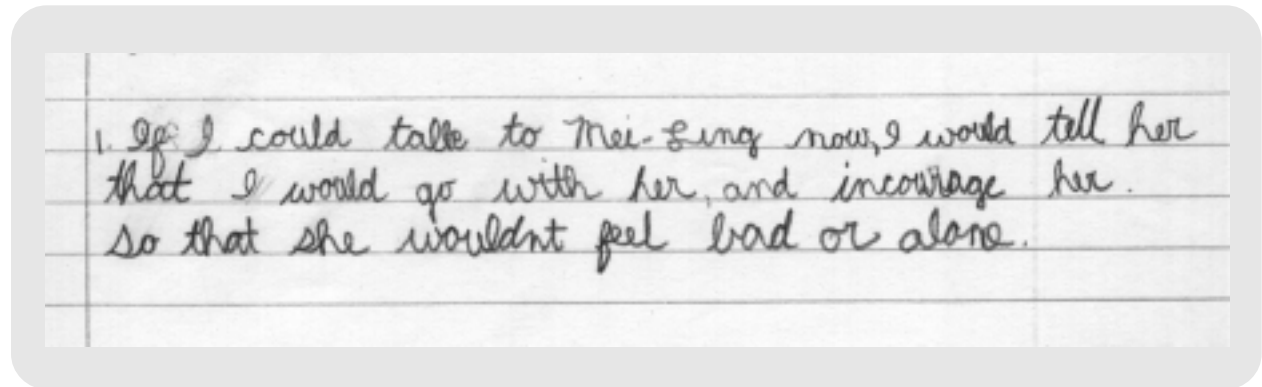 1. If I could talk to Mei-Ling now, I would tell her
that I would go with her, and incourage her.
so that she wouldnt feel bad or alone.